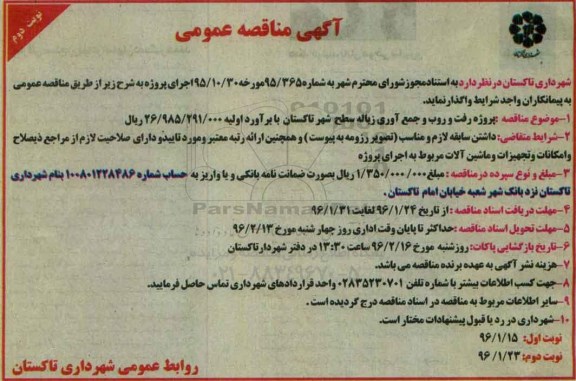 نوبت دوم
آگهی مناقصه عمومی
شهرداری تاکستان
شهرداری تاکستان در نظر دارد به استناد مجوز شورای محترم شهر به شماره ۹۵/۳۶۵ مورخه ۹۵/۱۰/۳۰ اجرای پروژه به شرح زیر از طریق مناقصه عمومی
به پیمانکاران واجد شرایط واگذار نماید.
۱-موضوع مناقصه :پروژه رفت و روب و جمع آوری زباله سطح شهر تاکستان با برآورد اولیه ۲۶/۹۸۵/۲۹۱/۰۰۰ ریال
۲-شرایط متقاضی: داشتن سابقه لازم و مناسب (تصویر رزومه به پیوست) و همچنین ارائه رتبه معتبر و مورد تایید و دارای صلاحیت لازم از مراجع ذیصلاح
وامکانات وتجهیزات وماشین آلات مربوط به اجرای پروژه
۳-مبلغ و نوع سپرده در مناقصه : مبلغ ۱/۳۵۰/۰۰۰/۰۰۰ ریال بصورت ضمانت نامه بانکی و یا واریز به حساب شماره ۱۰۰۸۰۱۲۲۸۴۸۶ بنام شهرداری
تاکستان نزد بانک شهر شعبه خیابان امام تاکستان .
۴-مهلت دریافت اسناد مناقصه : از تاریخ ۹۶/۱/۲۴ لغایت ۹۶/۱/۳۱
۵-مهلت تحویل اسناد مناقصه : حداکثر تا پایان وقت اداری روز چهار شنبه مورخ ۹۶/۲/۱۳
۶-تاریخ بازگشایی پاکات: روز شنبه مورخ ۹۶/۲/۱۶ ساعت ۱۳:۳۰ در دفتر شهردار تاکستان
۷-هزینه نشر آگهی به عهده برنده مناقصه می باشد.
۸-جهت کسب اطلاعات بیشتر با شماره تلفن ۰۲۸۳۵۲۳۰۷۰۱ واحد قراردادهای شهرداری تماس حاصل فرمایید.
۹-سایر اطلاعات مربوط به مناقصه در اسناد مناقصه درج گردیده است .
۱۰-شهرداری در رد یا قبول پیشنهادات مختار است.
نوبت اول: ۹۶/۱/۱۵
نوبت دوم: ۹۶/۱/۲۳
روابط عمومی شهرداری تاکستان